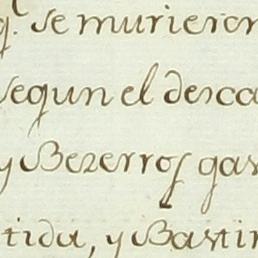 q.e se murieron
segun el desca
y Bezerros gas
tida, y Bastin